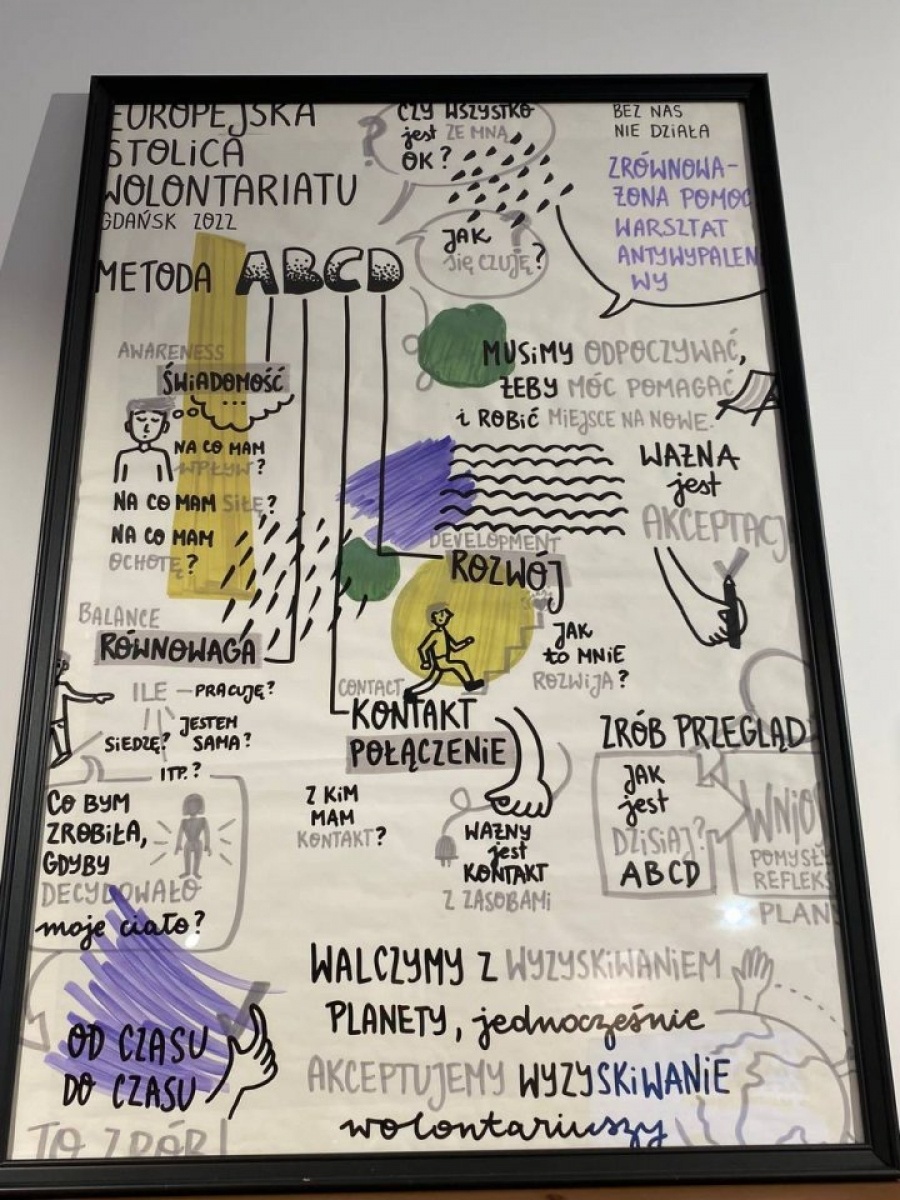 EUROPEJSKA
STOLICA
WOLONTARIATU
GDAŃSK 2022
CZY WSZYSTKO
jest ZE MNĄ
OK?
JAK
SIĘ CZUJĘ?
BEZ NAS
NIE DZIAŁA
ZRÓWNOWA-
ŻONA POMOC
WARSZTAT
ANTYWYPALEN
WY
METODA ABCD
AWARENESS
ŚWIADOMOŚĆ
...
NA CO MAM
WPŁYW?
NA CO MAM SIŁĘ?
NA CO MAM
OCHOTĘ?
MUSIMY ODPOCZYWAĆ,
ŻEBY MÓC POMAGAĆ
i ROBIĆ MIEJSCE NA NOWE.
WAŻNA
jest
AKCEPTACJ
DEVELOPMENT
ROZWÓJ
JAK
to MNIE
ROZWIJA?
BALANCE
RÓWNOWAGA
ILE – PRACUJĘ?
SIEDZĘ?
JESTEM
SAMA?
ITP.?
CONTACT
KONTAKT
POŁĄCZENIE
Z KIM
MAM
KONTAKT?
WAŻNY
jest
KONTAKT
Z ZASOBAMI
ZRÓB PRZEGLĄD
JAK
jest
DZISIAJ?
ABCD
WNIO
POMYSŁY
REFLEKS
PLAN
CO BYM
ZROBIŁA,
GDYBY
DECYDOWAŁO
moje ciało?
OD CZASU
DO CZASU
TO ZRÓB!
WALCZYMY Z WYZYSKIWANIEM
PLANETY, jednocześnie
AKCEPTUJEMY WYZYSKIWANIE
wolontariuszy